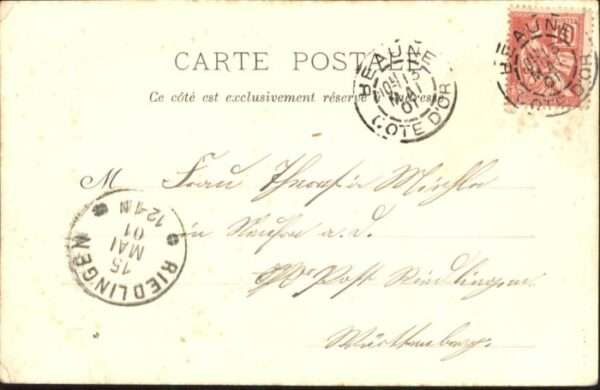 CARTE POSTALE
Ce côté est exclusivement réservé
BEAUNE
13
MAI
01
COTE D'OR
BEAUNE
13
MAI
01
COTE D'OR
10
M Frau
in a. d.
Post Riedlingen
Württemberg.
RIEDLINGEN
15
MAI
01
12-1 N